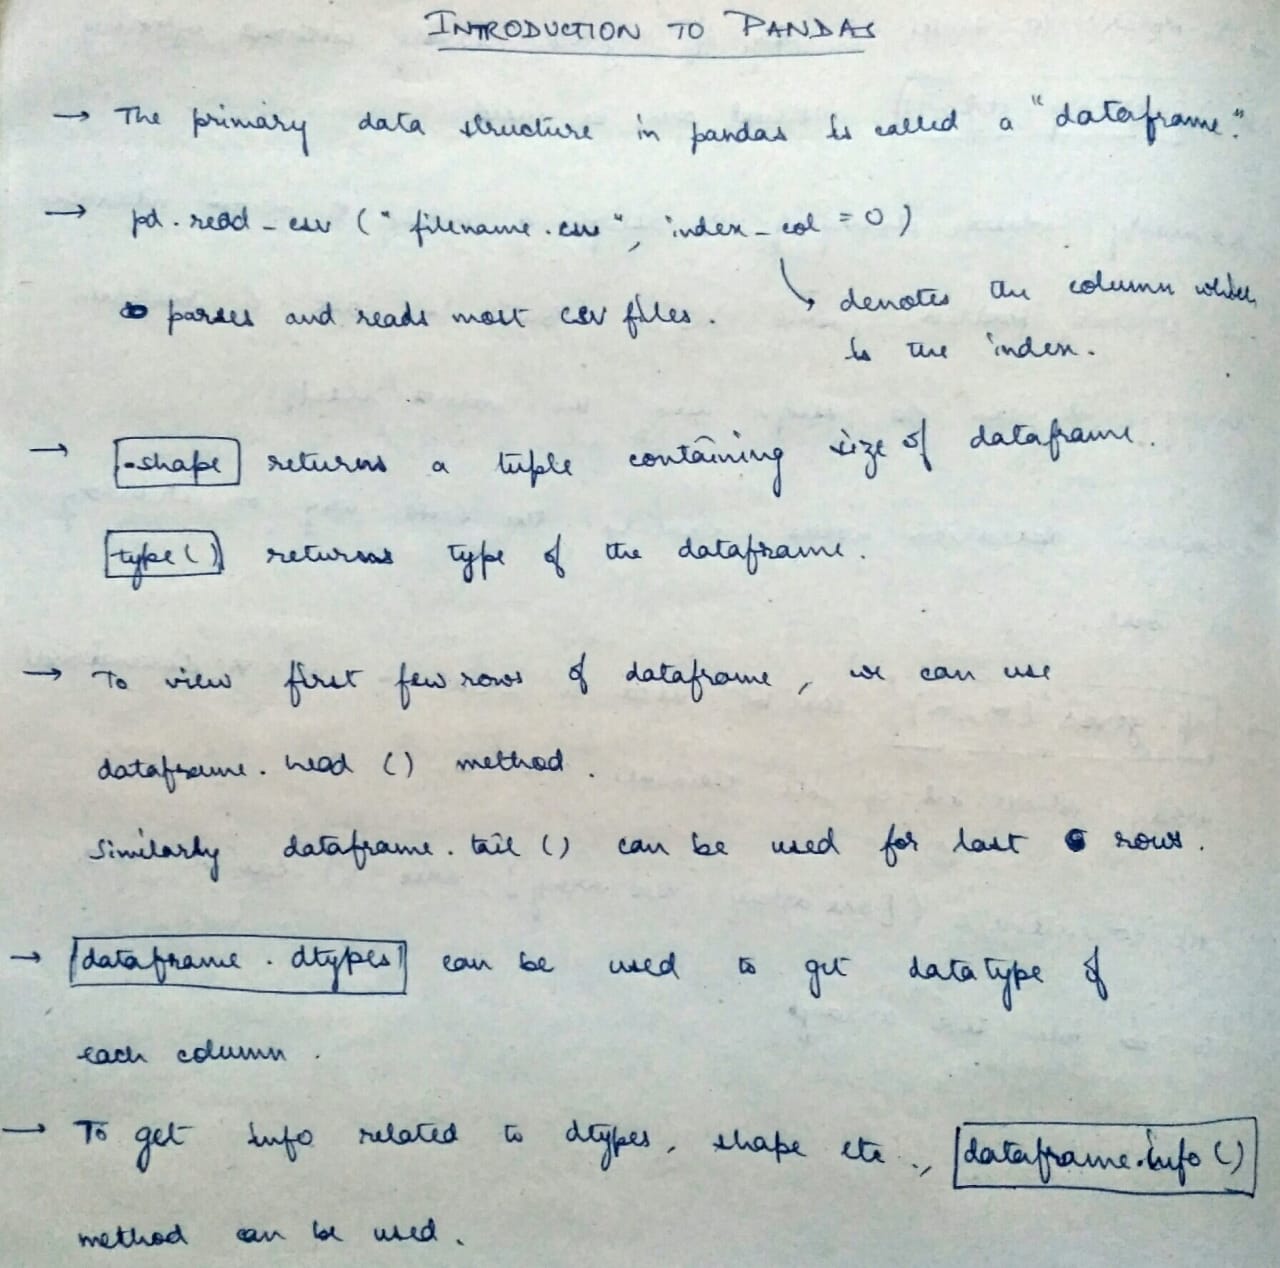 INTRODUCTION TO PANDAS
→ The primary data structure in pandas is called a "dataframe".
→ pd.read_csv ("filename.csv", index_col = 0)
parses and reads most csv files.
↳ denotes the column which
is the index.
→ .shape returns a tuple containing size of dataframe.
type() returns type of the dataframe.
→ To view first few rows of dataframe, we can use
dataframe.head () method.
Similarly dataframe.tail () can be used for last rows.
→ dataframe.dtypes can be used to get datatype of
each column.
→ To get info related to dtypes, shape etc., dataframe.info ()
method can be used.